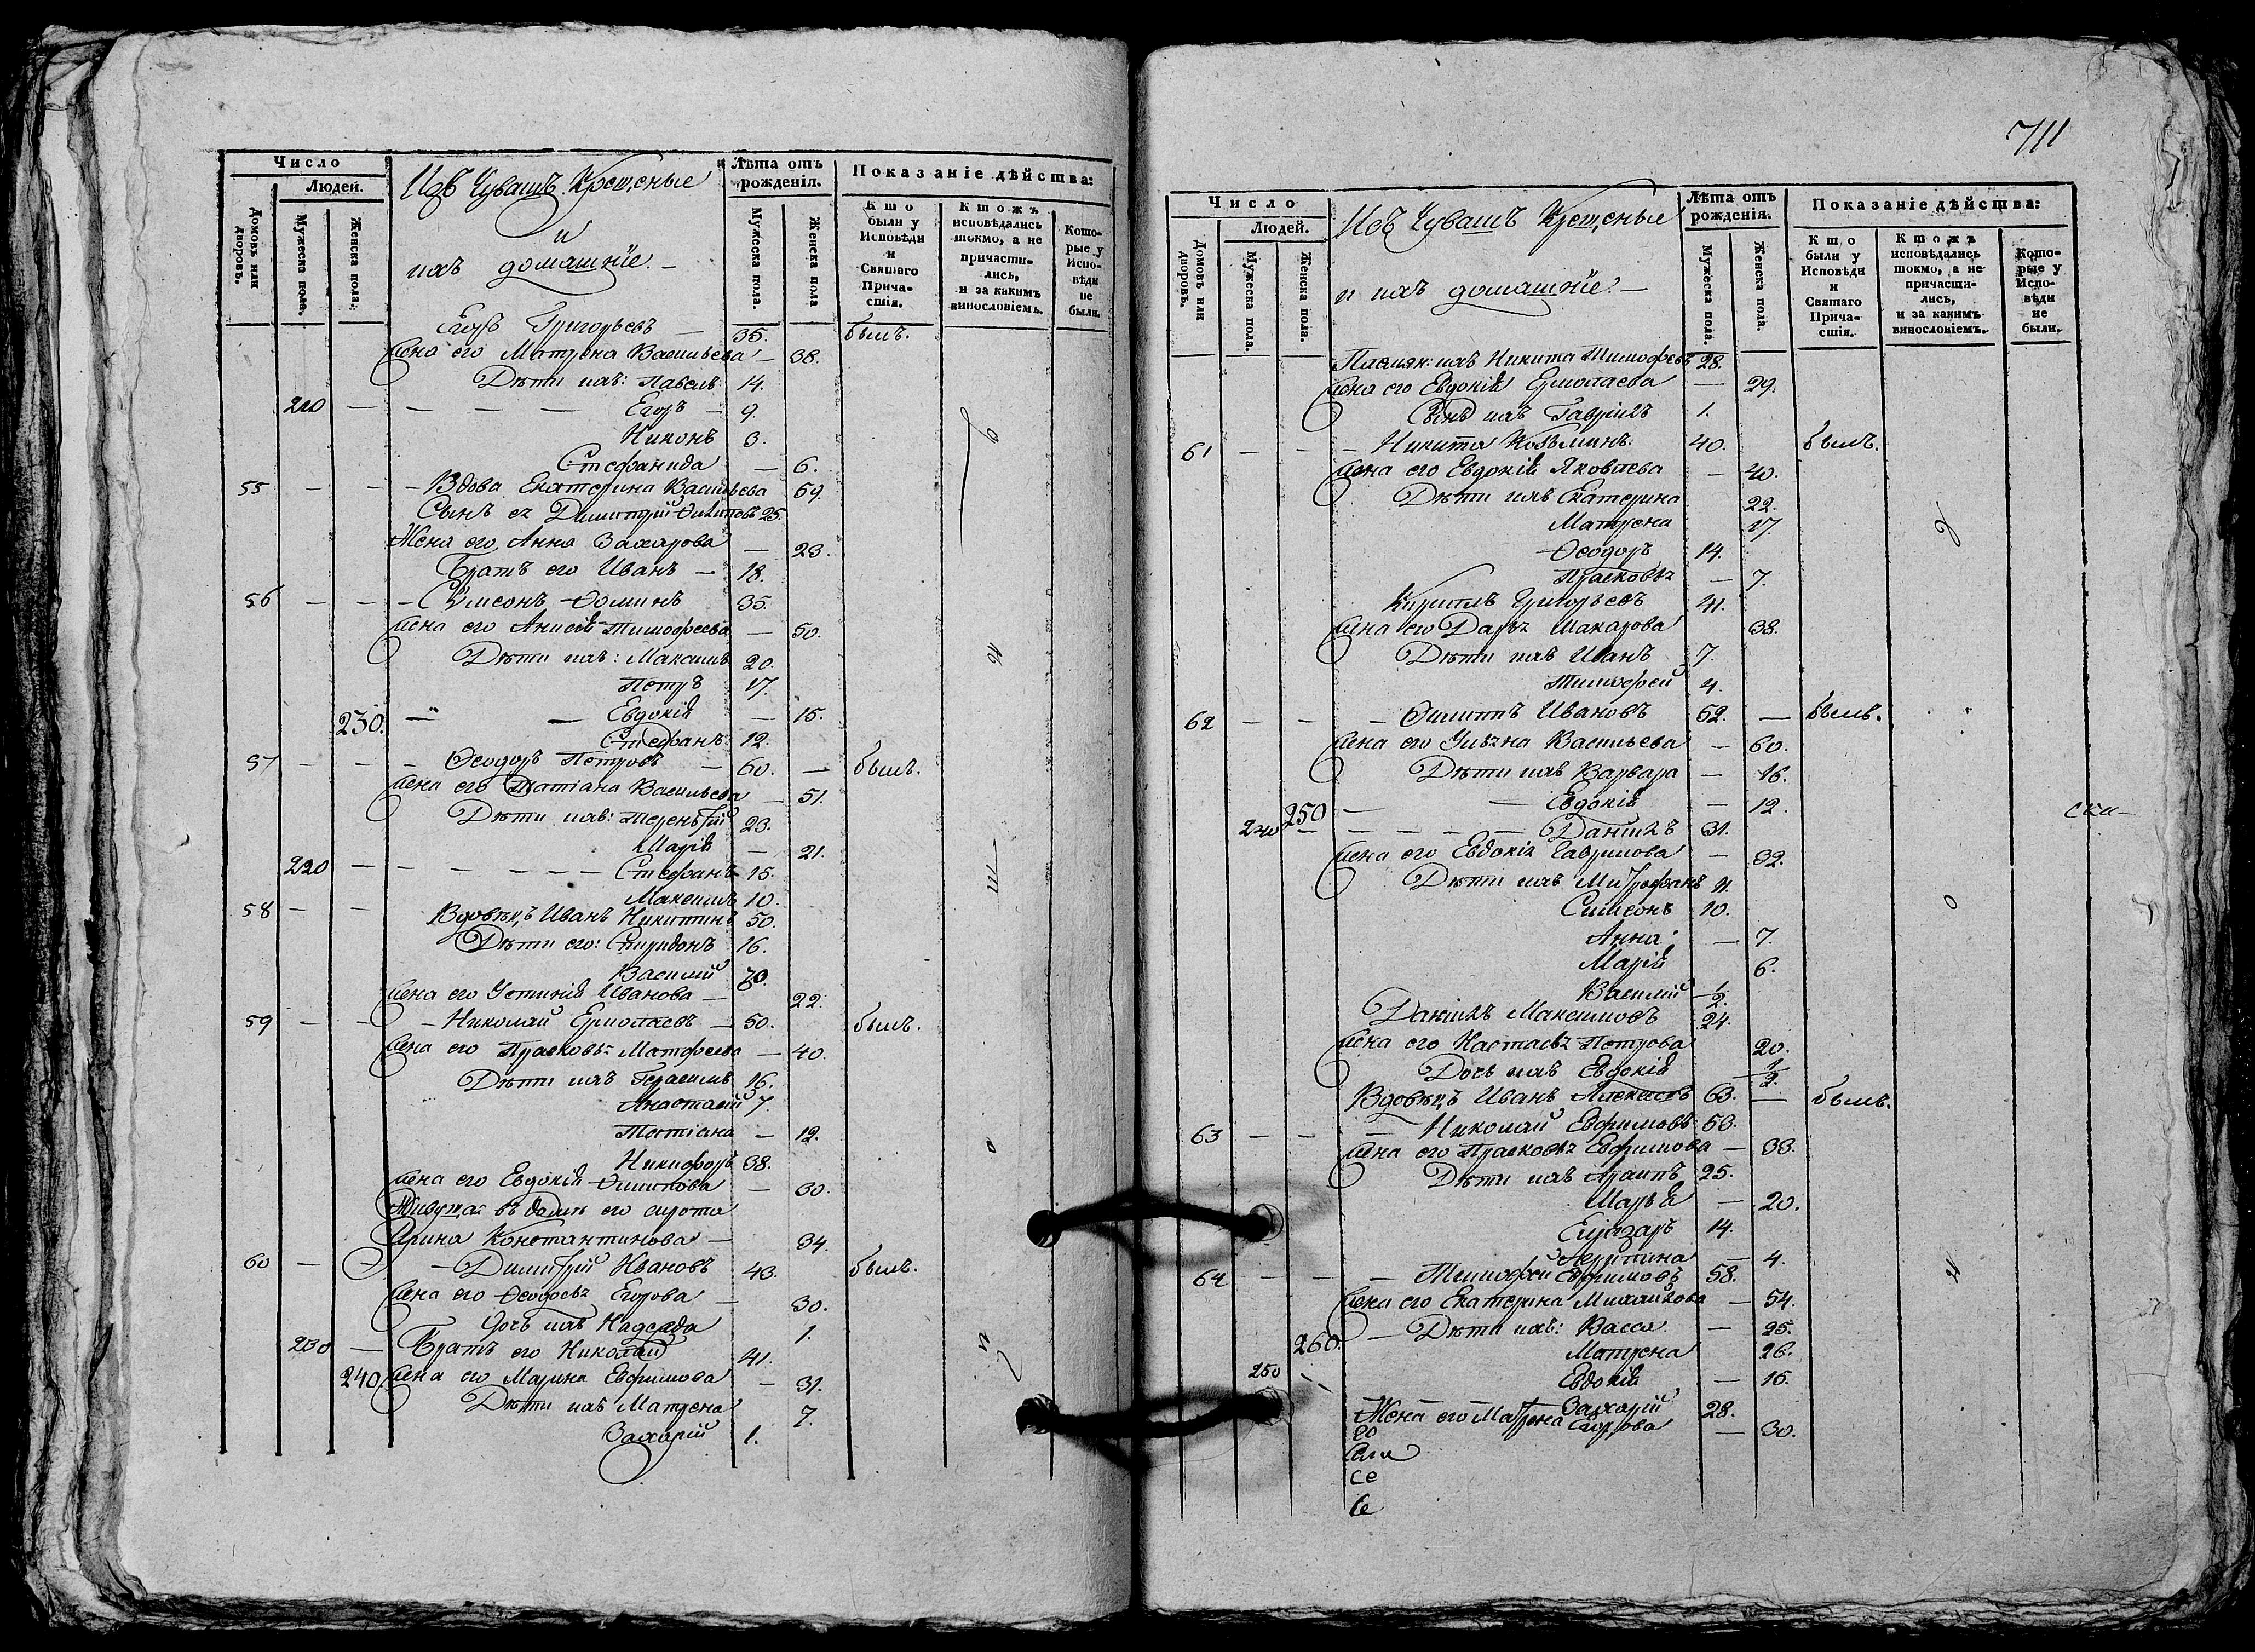 Число
Людей.
Домовъ или дворовъ.
Мужеска пола.
Женска пола.
Изъ Чувашъ Крещеные
и
ихъ домашніе. —
Лѣта отъ рожденія.
Мужеска пола.
Женска пола
Показаніе дѣйства:
Кто были у Исповѣди и Святаго Причастія.
Ктожъ исповѣдались токмо, а не причастились, и за какимъ винословіемъ.
Которые у Исповѣди не были.
Егоръ Григорьевъ — 35. былъ.
Жена его Матрена Васильева — 38.
Дѣти ихъ: Павелъ 14.
210 — — — — — Егоръ — 9.
Никонъ 3.
Стефанида — 6.
55 — — — Вдова Екатерина Васильева 59.
Сынъ ея Димитрій Филиповъ 25.
Жена его Анна Захарова — 23.
Братъ его Иванъ — 18.
56 — — — Сѵмеонъ Ѳоминъ 35.
Жена его Анисія Тимофеева — 50.
Дѣти ихъ: Максимъ 20.
Петръ 17.
230. — — Евдокія — 15.
Стефанъ 12.
57 — — — Ѳеодоръ Петровъ — 60. — былъ.
Жена его Татіана Васильева — 51.
Дѣти ихъ: Терентій 23.
Марія — 21.
220 — — — — — — Стефанъ 15.
Максимъ 10.
58 — — Вдовецъ Иванъ Никитинъ 50.
Дѣти его: Спиридонъ 16.
Василій 20.
Жена его Устинія Иванова — 22.
59 — — — Николай Ермолаевъ — 50. былъ.
Жена его Прасковья Матфеева — 40.
Дѣти ихъ Герасимъ 16.
Анастасій 7.
Татіана — 12.
Никифоръ 38.
Жена его Евдокія Филипова — 30.
Живущая въ домѣ его сирота
Арина Константинова — 34.
60 — — — Димитрій Ивановъ 43. былъ.
Жена его Ѳеодосья Егорова — 30.
Дочь ихъ Надежда 1.
230 — Братъ его Николай 41.
240 Жена его Марина Евфимова — 31.
Дѣти ихъ Матрена 7.
Захарій 1.
711
Число
Людей.
Домовъ или дворовъ.
Мужеска пола.
Женска пола.
Изъ Чувашъ Крещеные
и ихъ домашніе. —
Лѣта отъ рожденія.
Мужеска пола.
Женска пола.
Показаніе дѣйства:
Кто были у Исповѣди и Святаго Причастія.
Ктожъ исповѣдались токмо, а не причастились, и за какимъ винословіемъ.
Которые у Исповѣди не были.
Племян: ихъ Никита Тимофеевъ 28.
Жена его Евдокія Ермолаева — 29.
Сынъ ихъ Гавріилъ 1.
61 — — — Никита Козьминъ. 40. былъ.
Жена его Евдокія Яковлева — 40.
Дѣти ихъ Екатерина 22.
Матрена 17.
Ѳеодоръ 14.
Прасковья — 7.
Кирилъ Григорьевъ 41.
Жена его Дарья Макарова 38.
Дѣти ихъ Иванъ 7.
Тимофей 4.
62 — — — Филиппъ Ивановъ 52. — былъ.
Жена его Ульяна Васильева — 60.
Дѣти ихъ Варвара — 16.
250 — — Евдокія — 12.
240 — — — — — Даніилъ 31.
Жена его Евдокія Гаврилова — 32.
Дѣти ихъ Митрофанъ 11.
Симеонъ 10.
Анна — 7.
Марія 6.
Василій 1/2.
Даніилъ Максимовъ 24.
Жена его Настасья Петрова 20.
Дочь ихъ Евдокія 1/2.
Вдовецъ Иванъ Алексеевъ 63. — былъ.
63 — — — Николай Евфимовъ 53.
Жена его Прасковья Евфимова — 33.
Дѣти ихъ Архипъ 25.
Марья — 20.
Елиазаръ 14.
— 4.
64 — — — Тимофей Евфимовъ 58.
Жена его Екатерина Михайлова — 54.
260. — Дѣти ихъ: Васса — 25.
Матрена 26.
250 Евдокія — 15.
Захарій 28.
Жена его Матрена Егорова — 30.
Се
Се
ски-